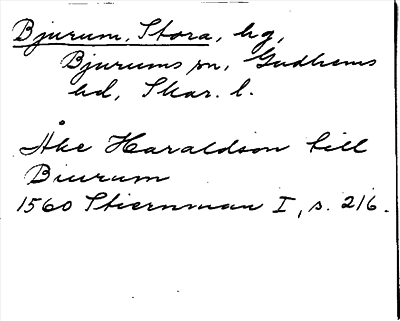 Bjurum, Stora, hg,
Bjurums sn, Gudhems
hd, Skar. l.
Åke Haraldson till
Biurum
1560 Stiernman I, s. 216.